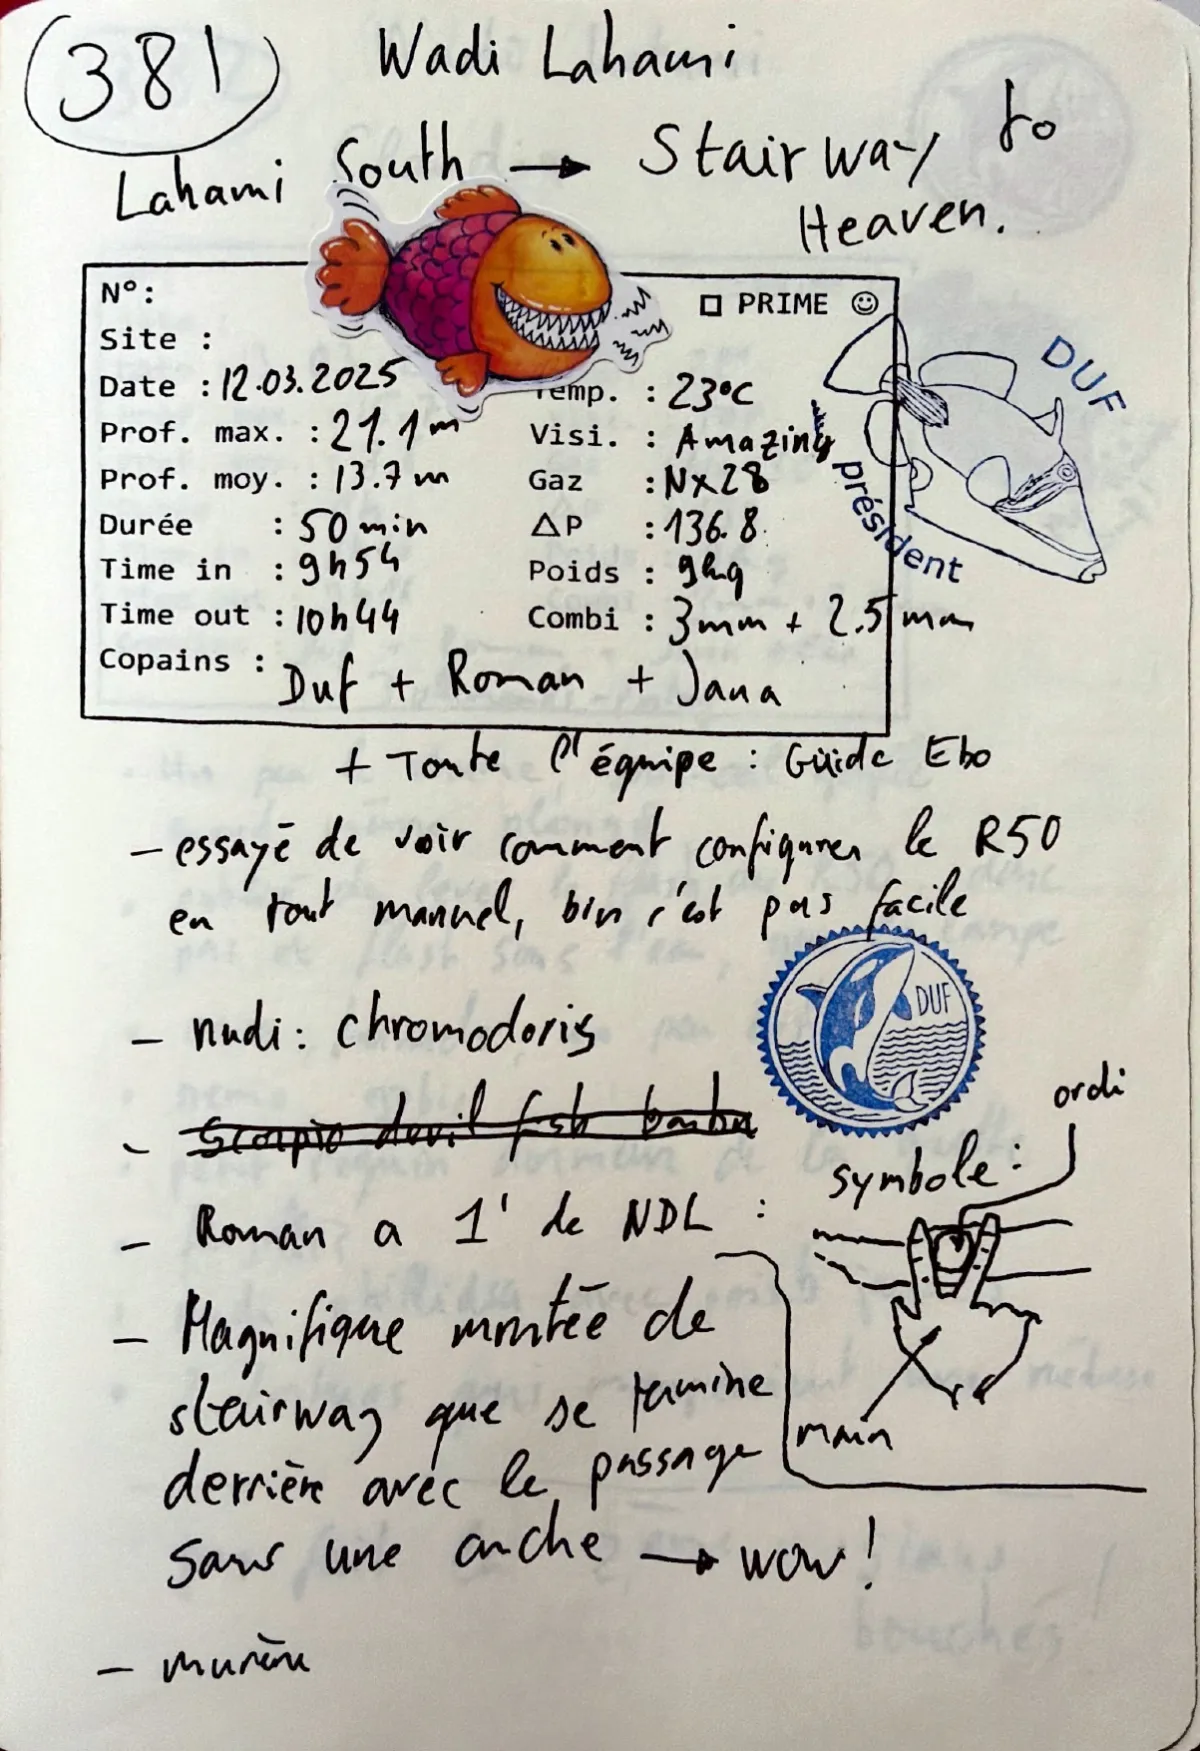 381
Wadi Lahami
Lahami South → Stairway to
Heaven.
N°:
□ PRIME ☺
Site :
Date : 12.03.2025
Temp. : 23°C
Prof. max. : 21.1 m
Visi. : Amazing
Prof. moy. : 13.7 m
Gaz : Nx28
Durée : 50 min
△P : 136.8
Time in : 9h54
Poids : 9kg
Time out : 10h44
Combi : 3mm + 2.5 mm
Copains : Duf + Roman + Jana
DUF
président
+ Toute l'équipe : Guide Ebo
- essayé de voir comment configurer le R50
en tout manuel, bin c'est pas facile
DUF
- nudi : chromodoris
- Scorpio devil fish barbu
- Roman a 1' de NDL :
symbole :
ordi
main
- Magnifique montée de
stairway que se termine
derrière avec le passage
sous une arche → wow !
- murène